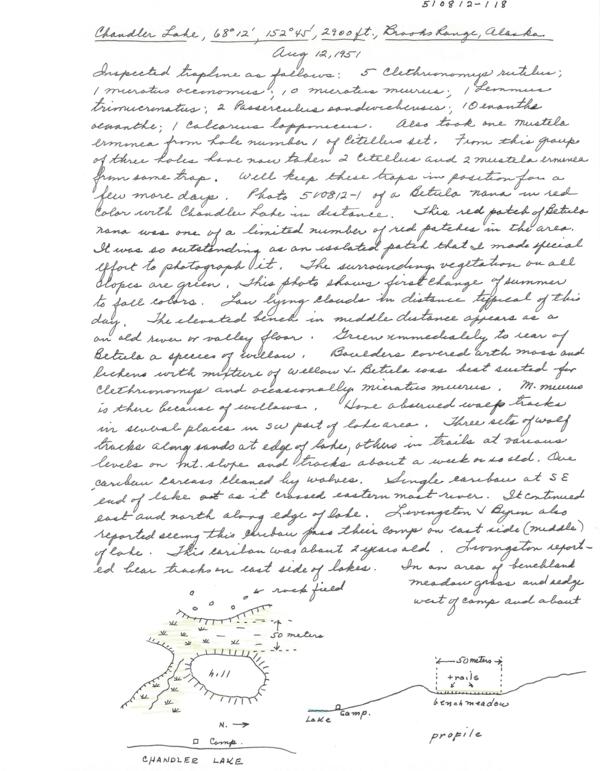 510812-118
Chandler Lake, 68°12', 152°45', 2900 ft., Brooks Range, Alaska
Aug 12, 1951
Inspected trapline as follows: 5 Clethrionomys rutilus;
1 microtus oeconomus; 10 microtus miurus; 1 Lemmus
trimucronatus; 2 Passerculus sandwichensis; 1 Oenanthe
oenanthe; 1 Calcarius lapponicus. Also took one Mustela
erminea from hole number 1 of Citellus set. From this group
of three holes have now taken 2 Citellus and 2 mustela erminea
from same trap. Will keep these traps in position for a
few more days. Photo 510812-1 of a Betula nana in red
color with Chandler Lake in distance. This red patch of Betula
nana was one of a limited number of red patches in the area.
It was so outstanding as an isolated patch that I made special
effort to photograph it. The surrounding vegetation on all
slopes are green. This photo shows first change of summer
to fall colors. Low lying clouds in distance typical of this
day. The elevated bench in middle distance appears as a
an old river or valley floor. Green immediately to rear of
Betula a species of willow. Boulders covered with moss and
lichens with mixture of willow & Betula was best suited for
Clethrionomys and occasionally microtus miurus. M. miurus
is there because of willows. Have observed wolf tracks
in several places in SW part of lake area. Three sets of wolf
tracks along sands at edge of lake, others in trails at various
levels on mt. slope and tracks about a week or so old. One
caribou carcass cleaned by wolves. Single caribou at SE
end of lake as it crossed eastern most river. It continued
east and north along edge of lake. Livingston & Byrin also
reported seeing this caribou pass their camp on east side (middle)
of lake. This caribou was about 2 years old. Livingston report-
ed bear tracks on east side of lakes. In an area of benchland
meadow grass and sedge
west of camp and about
rock field
50 meters
hill
N. →
Camp.
CHANDLER LAKE
50 meters
trails
bench meadow
Lake
Camp.
profile